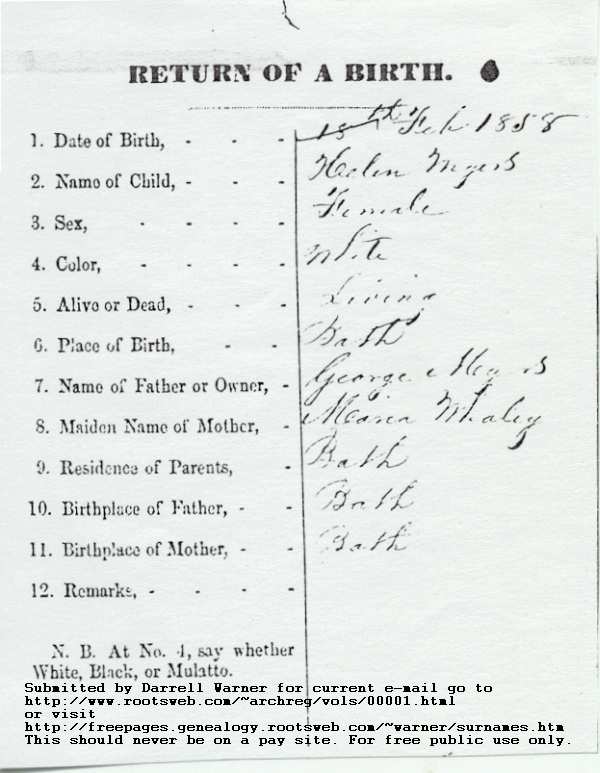 RETURN OF A BIRTH.
1. Date of Birth, - - - 18th Feb 1858
2. Name of Child, - - - Helen Myers
3. Sex, - - - - Female
4. Color, - - - - White
5. Alive or Dead, - - - Living
6. Place of Birth, - - Bath
7. Name of Father or Owner, - George Myers
8. Maiden Name of Mother, - Maria Whaley
9. Residence of Parents, - Bath
10. Birthplace of Father, - - Bath
11. Birthplace of Mother, - - Bath
12. Remarks, - - - -
N. B. At No. 4, say whether
White, Black, or Mulatto.
Submitted by Darrell Warner for current e-mail go to
http://www.rootsweb.com/~archreg/vols/00001.html
or visit
http://freepages.genealogy.rootsweb.com/~warner/surnames.htm
This should never be on a pay site. For free public use only.